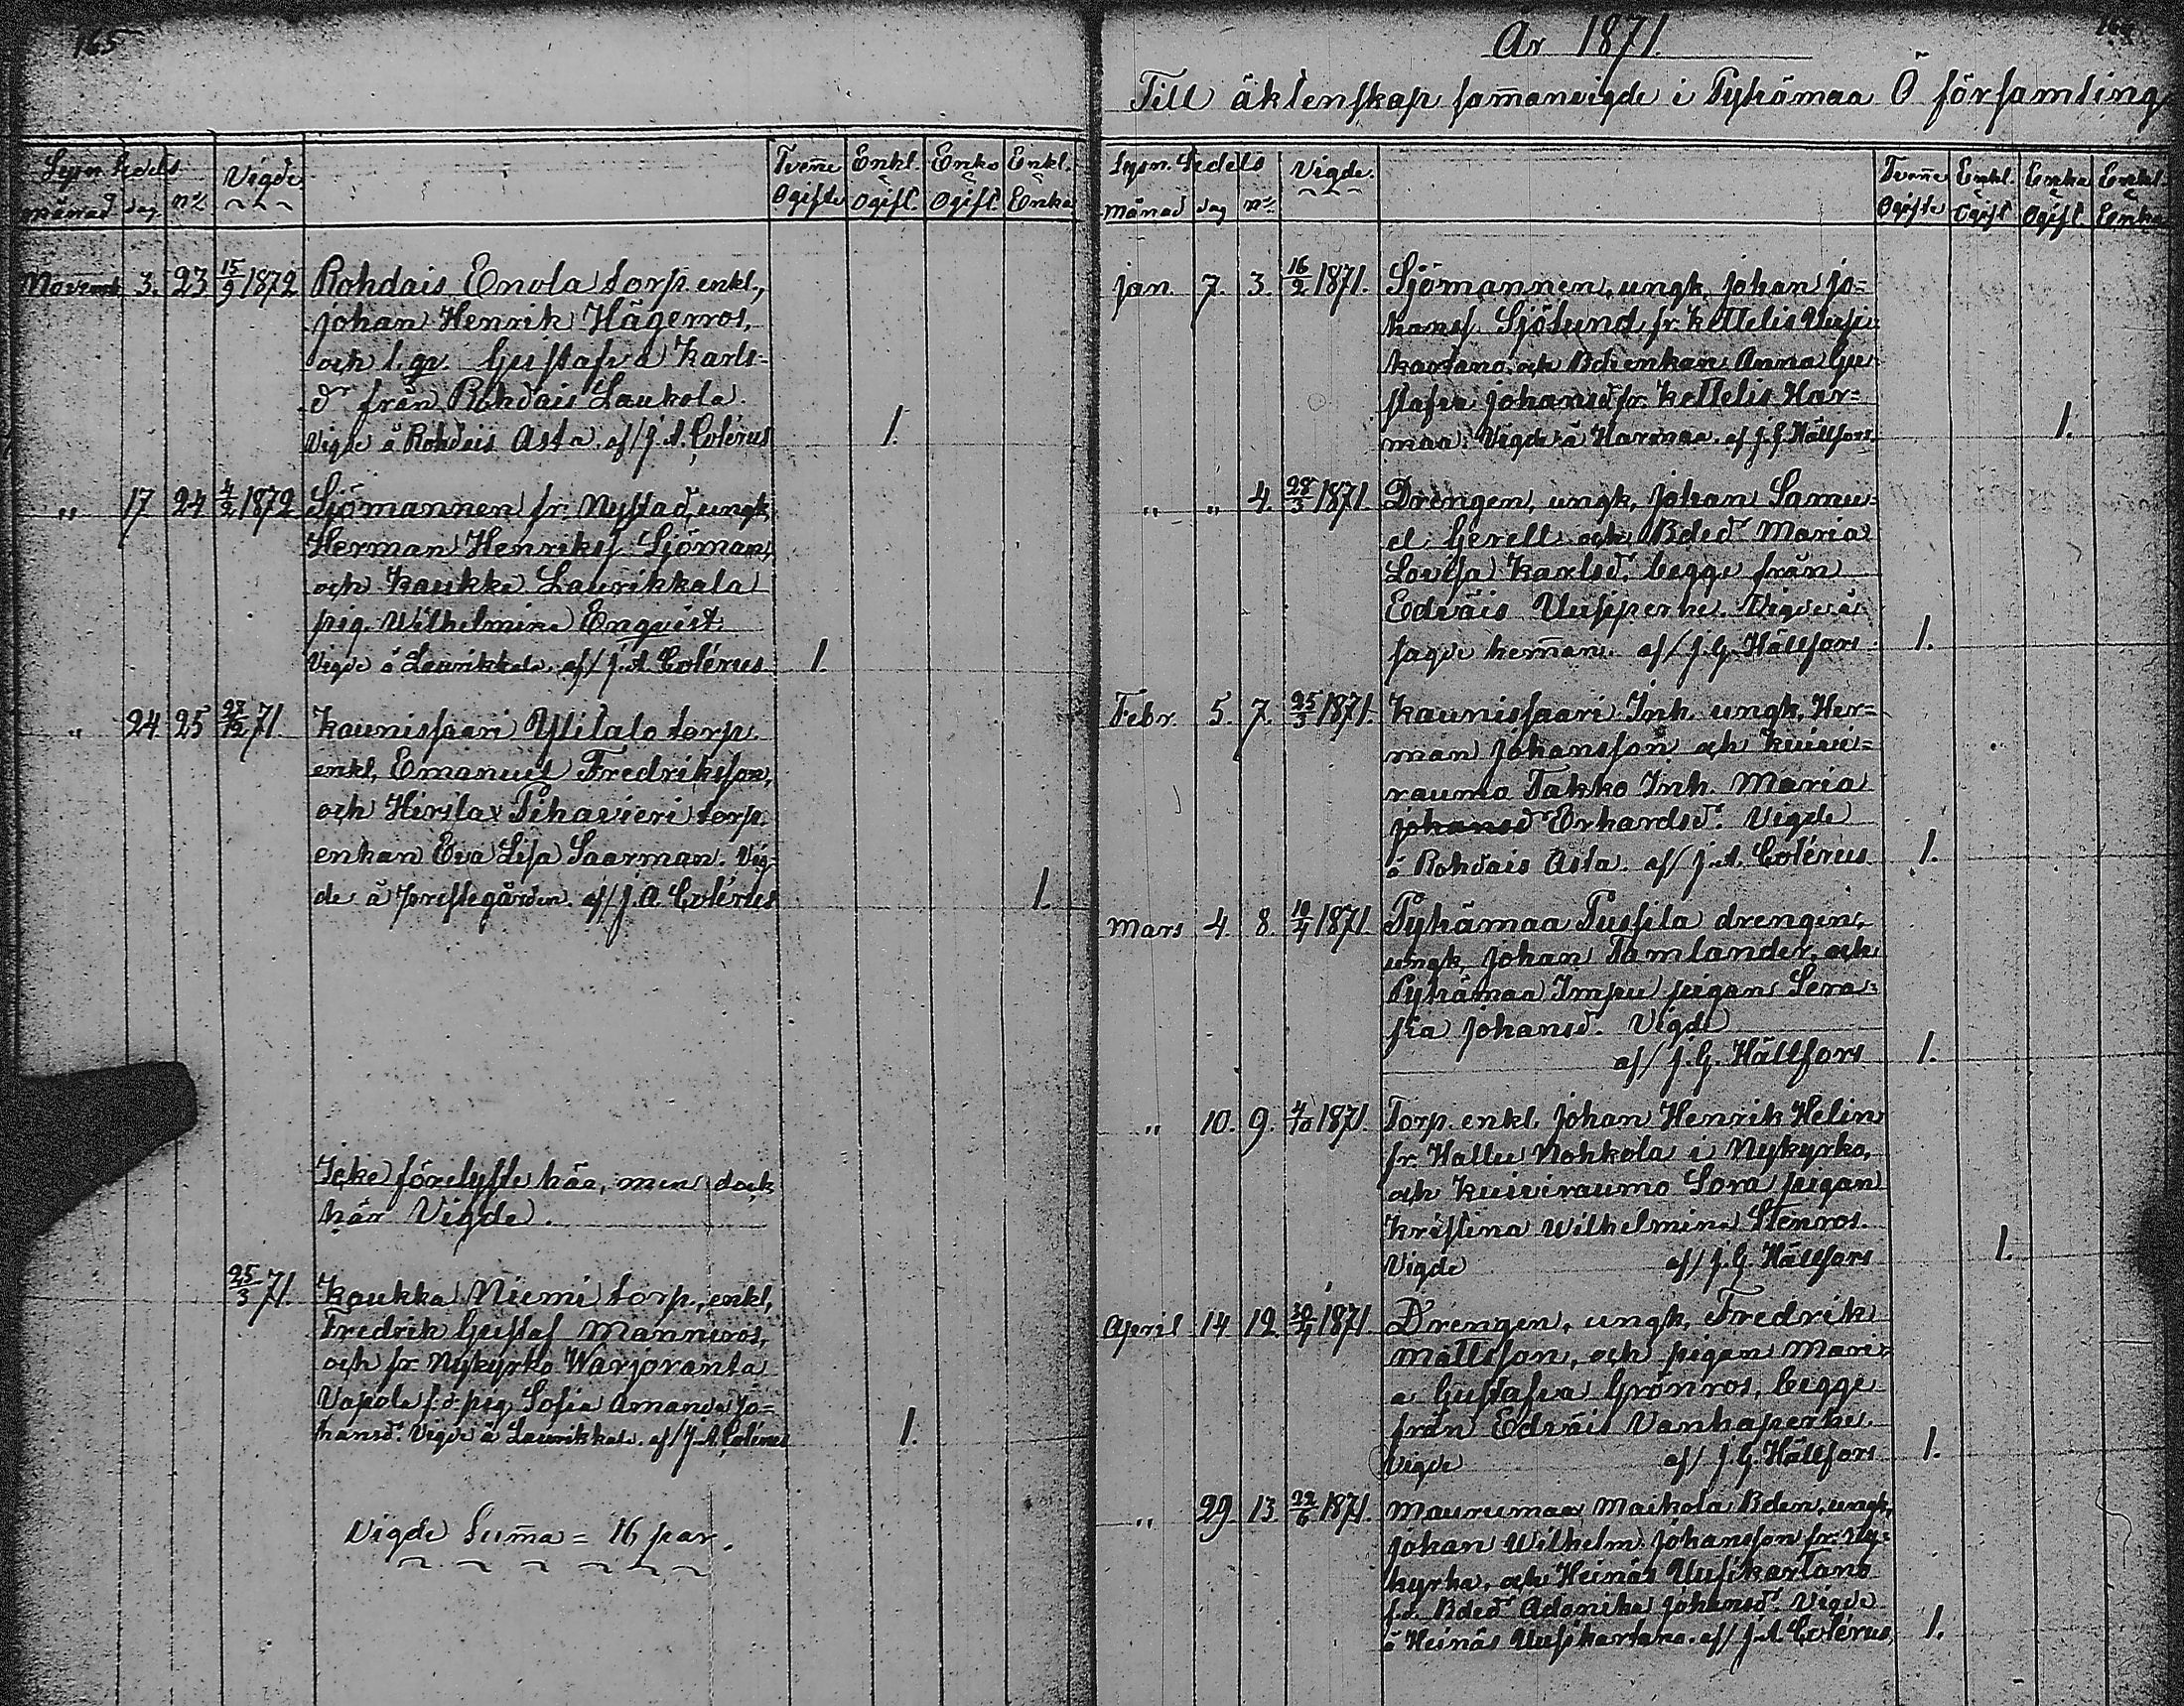 165
Lysn. Sedels
månad dag n:o
Vigde
Tvenne Ogifte
Enkl. o Ogift.
Enka o Ogift.
Enkl. o Enka
Novemb. 3. 23 15/9 1872 Rohdais Enola torp. enkl,
Johan Henrik Hägerros,
och l.gv. Gustafva Karls-
dr från Rohdais Laukola.
Vigde å Rohdais Asta. af/ J. A. Colérus 1.
" 17 24 4/2 1872 Sjömannen fr. Nystad, ungk,
Herman Henrikss. Sjöman,
och Kaukka Laurikkala
pig. Wilhelmina Enqvist.
Vigde å Laurikkala. af/ J. A. Colérus 1.
" 24 25 27/12 71. Kaunissaari Ylitalo torp.
enkl, Emanuel Fredriksson,
och Hirslax Pihavieri torp.
enkan Eva Lisa Saarman. Vig-
de å Prestegården. af/ J. A. Colérus 1.
Icke förelyste här, men dock
här Vigde.
25/3 71. Kaukka Niemi torp., enkl,
Fredrik Gustaf Manneros,
och fr. Nykyrko Warjoranta
Vapola f.d. pig. Sofia Amanda Jo-
hansd. Vigde å Laurikkala. af/ J. A. Colérus 1.
Vigde Suma = 16 par.
År 1871.
Till äktenskap samanvigde i Pyhämaa Ö församling
Lysn. Sedels
Månad dag n:o
Vigde.
Tvenne Ogifte
Enkl. o Ogift
Enka o Ogift.
Enkl. o Enka
Jan. 7. 3. 16/2 1871. Sjömannen, ungk, Johan Jo-
hanss. Sjölund fr. Kettelis Uusi-
kartano, och Bdeenkan Anna Gu-
stafva Johansd. fr. Kettelis Har-
maa. Vigde å Harmaa. af J. G. Hällfors 1.
" " 4. 28/3 1871. Drengen, ungk, Johan Samu-
el Gerell och Bded. Maria
Lovisa Karlsd. begge från
Edväis Uusiperhe. Vigde å
sagde heman. af/ J. G. Hällfors 1.
Febr. 5. 7. 25/3 1871. Kaunissaari Inh. ungk, Her-
man Johansson och Kuivi-
raumo Takko Inh. Maria
Johansd Erhardsd. Vigde
å Rohdais Asta. af/ J. A. Colérus 1.
Mars 4. 8. 10/4 1871. Pyhämaa Pussila drengen,
ungk, Johan Tamlander, och
Pyhämaa Impu pigan Sera-
fia Johansd. Vigde
af/ J. G. Hällfors 1.
" 10. 9. 4/10 1871. Torp. enkl. Johan Henrik Helin
fr. Hallu Nohkola i Nykyrko,
och Kuiviraumo Sora pigan
Kristina Wilhelmina Stenros.
Vigde af/ J. G. Hällfors 1.
April 14 12 30/4 1871. Drengen, ungk, Fredrik
Mattsson, och pigan Mari-
a Gustafva Grönros, begge
från Edväis Vanhaperhe.
Vigde af/ J. G. Hällfors 1.
" 29. 13. 22/6 1871. Maurumaa Maikola Bden, ungk,
Johan Wilhelm Johansson fr. Ny-
kyrka, och Heinäs Uusikartano
f.d. Bded. Adonika Johansd. Vigde
å Heinäs Uusikartano. af/ J. A. Colérus 1.